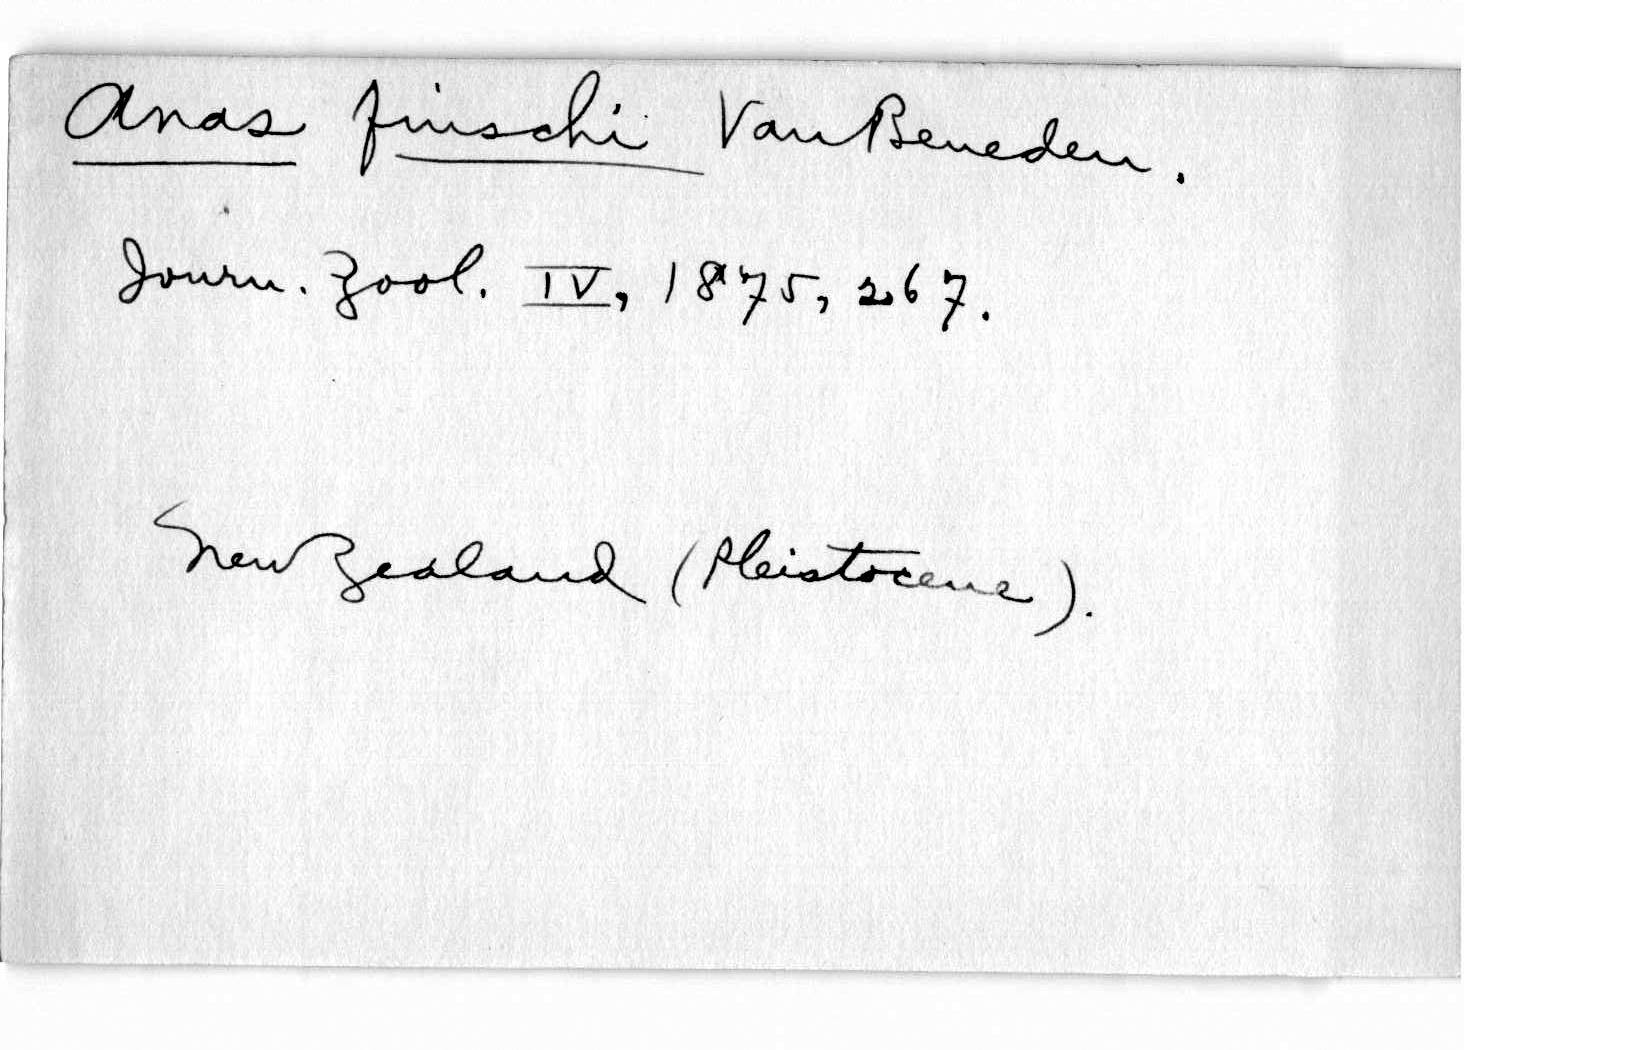 Anas finschi Van Beneden.
Journ. Zool. IV, 1875, 267.
New Zealand (Pleistocene).